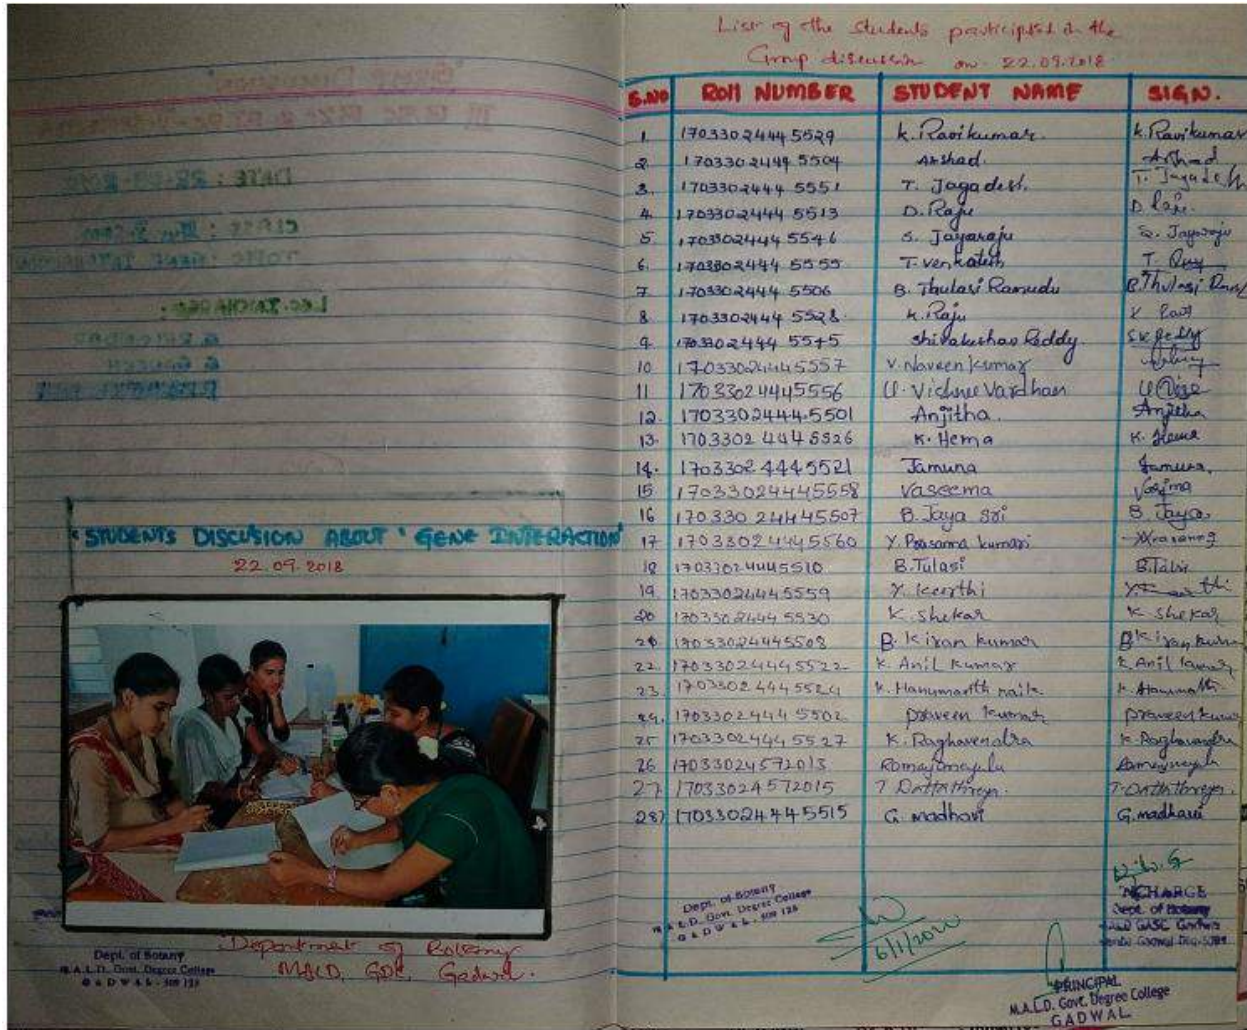 "STUDENTS DISCUSION ABOUT 'GENE INTERACTION'
22.09.2018
Department of Botany
MALD, GDC, Gadwal.
Dept. of Botany
M.A.L.D. Govt. Degree College
GADWAL - 509 125
List of the Students participated in the
Group discussion on 22.09.2018
S.NO ROll NUMBER STUDENT NAME SIGN.
1. 17033024445529 K. Ravikumar. K. Ravikumar
2. 17033024445504 Arshad. Arshad
3. 17033024445551 T. Jagadesh. T. Jagadesh
4. 17033024445513 D. Raju D. Raju
5. 17033024445546 S. Jayaraju S. Jayaraju
6. 17033024445555 T. Venkatesh T.
7. 17033024445506 B. Thulasi Ramudu B. Thulasi
8 17033024445528. K. Raju K
9. 17033024445545 Reddy SK Reddy
10. 17033024445557 V. Naveen Kumar
11 17033024445556 U. Vishnu Vardhan
12. 17033024445501 Anjitha. Anjitha
13. 17033024445526 K. Hema K. Hema
14. 17033024445521 Jamuna Jamuna,
15 17033024445558 Vaseema
16 17033024445507 B. Jaya Sri B. Jaya
17 17033024445560 Y. Prasanna kumari
18 17033024445510 B. Tulasi
19. 17033024445559 Y. Keerthi
20 17033024445530 K. Shekar K. Shekar
21 17033024445508 B. Kiran Kumar B Kiran
22. 17033024445522 K. Anil Kumar K. Anil
23. 17033024445524 K. Hanumanth naik K.
24. 17033024445502 praveen kumar praveen
25 17033024445527 K. Raghavendra K Raghavendra
26 17033024572013
27. 17033024572015 T T.
28) 17033024445515 G. madhavi G. madhavi
Dept. of Botany
M.A.L.D. Govt. Degree College
GADWAL - 509 125
6/1/2020
INCHARGE
Dept. of Botany
PRINCIPAL
M.A.L.D. Govt. Degree College
GADWAL